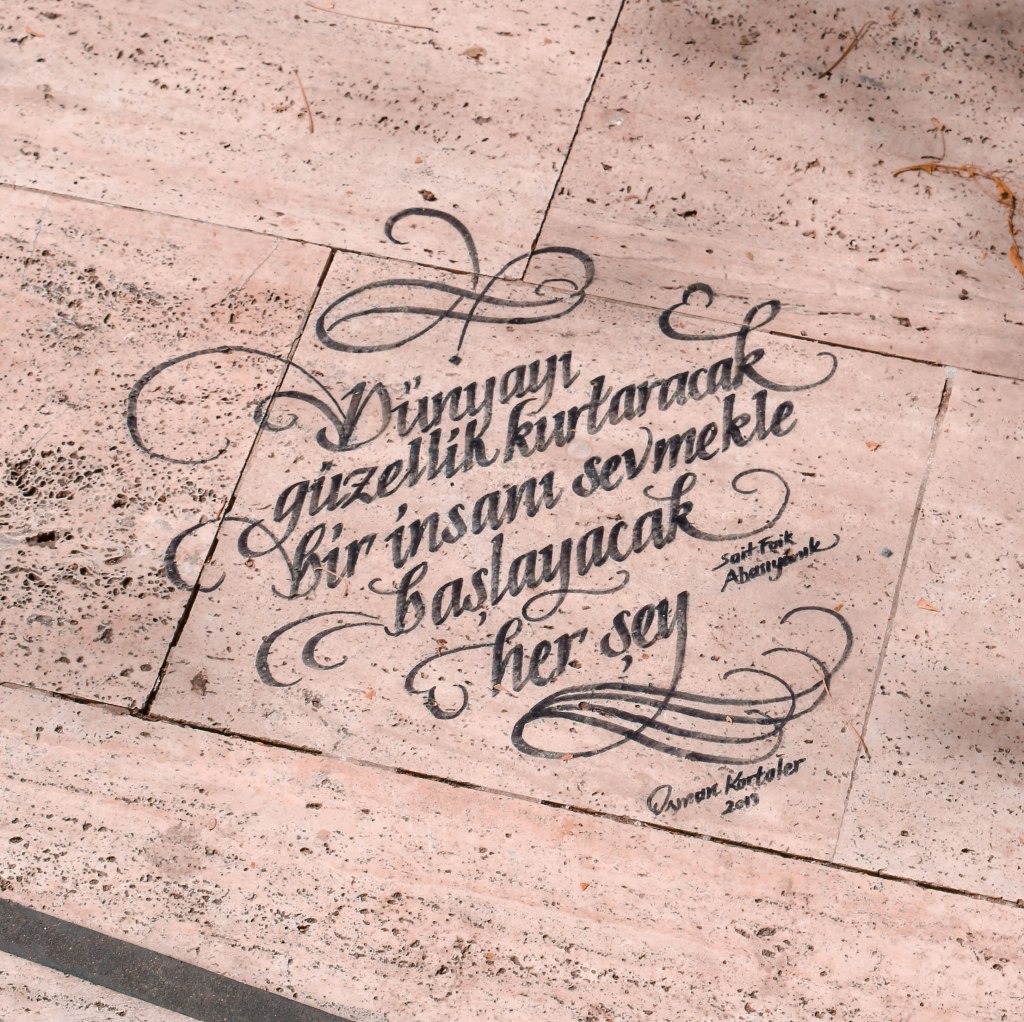 Dünyayı
güzellik kurtaracak
bir insanı sevmekle
başlayacak
her şey
Sait Faik
Abasıyanık
Osman Kartaler